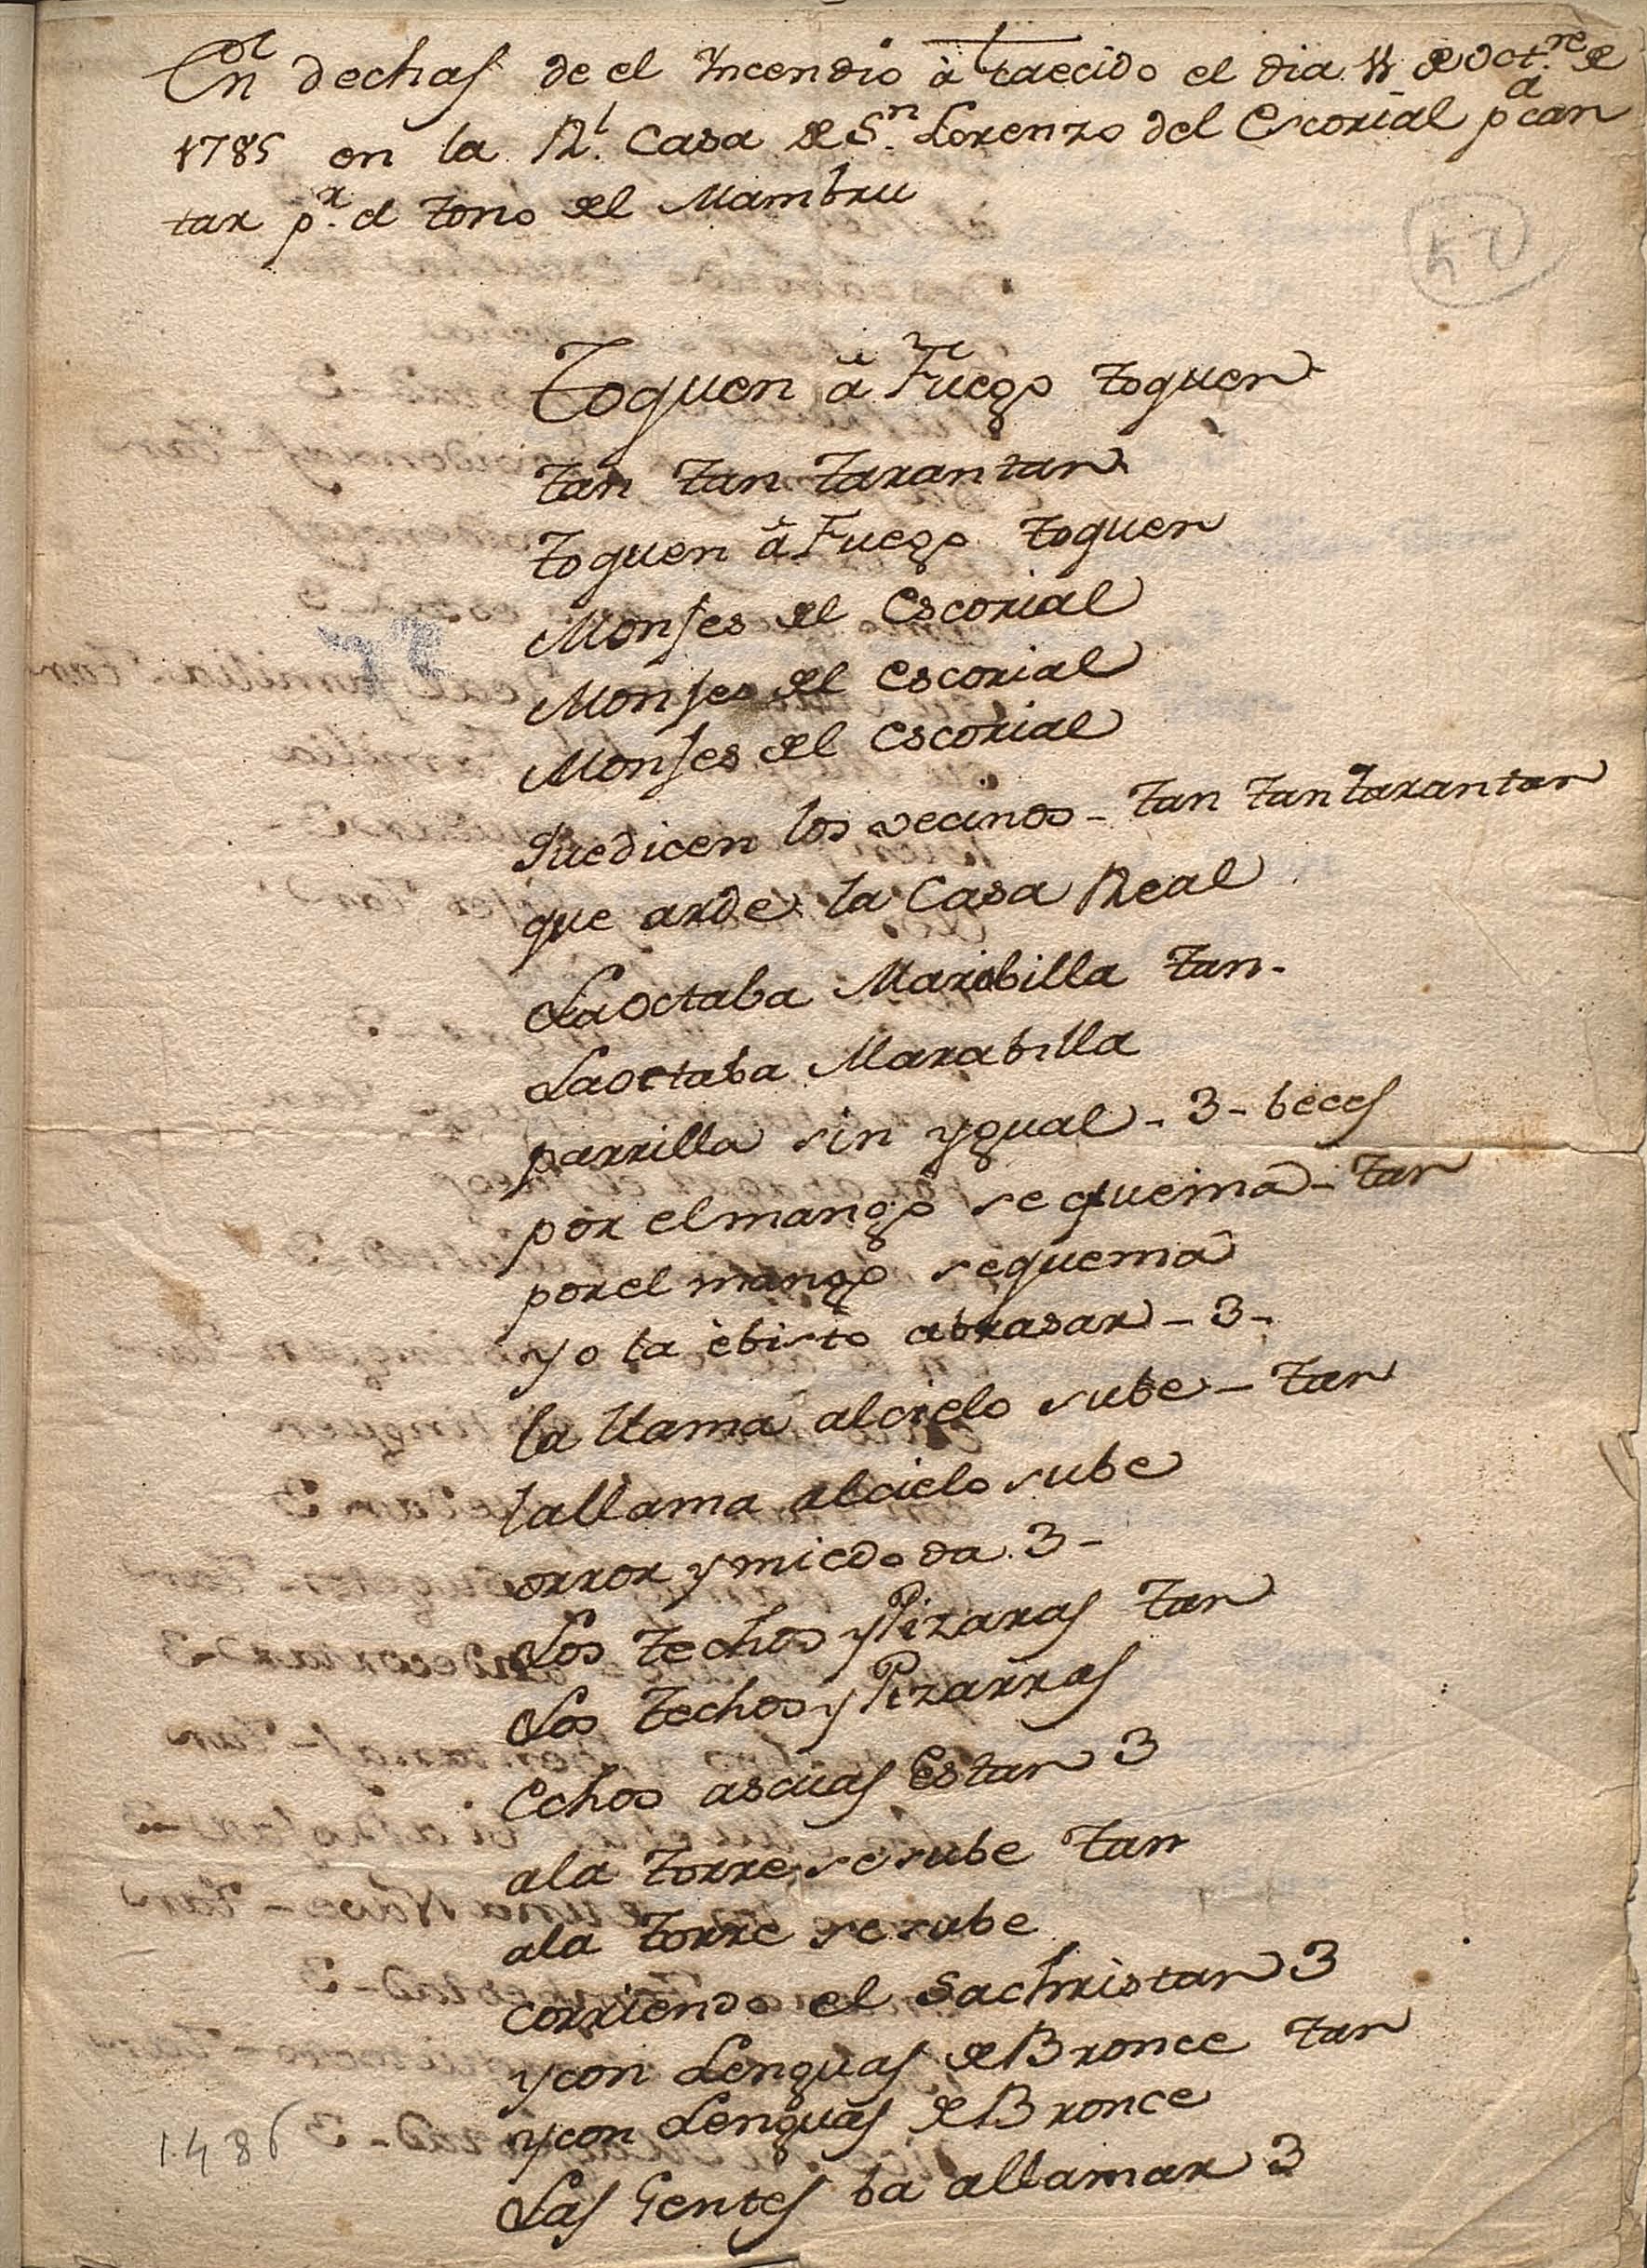 En dechas de el Yncendio à taecido el dia 11 de Oct.re de
1785 en la R.l Casa de S.n Lorenzo del Escorial p.a can
tar p.r el tono del Mambru
52
Toquen à Fuego toquen
tan tan tarantan
toquen à Fuego toquen
Monjes del Escorial
Monjes del Escorial
Monjes del Escorial
Quedicen los vecinos - tan tan tarantan
que arde la Casa Real
La octaba Marabilla tan -
La octaba Marabilla
parrilla sin ygual - 3 - beces
por el mango se quema - tan
por el mango se quema
yo la èbisto abrasar - 3 -
la llama alcielo sube - tan
la llama alcielo sube
orror y miedo da 3 -
Los techos y Pizaras tan
Los techos y Pizarras
echos ascuas Estan 3
ala torre se sube tan
ala torre se sube
corriendo el Sachristan 3
y con Lenguas de Bronce tan
y con Lenguas de Bronce
Las Gentes ba allamar 3
1486